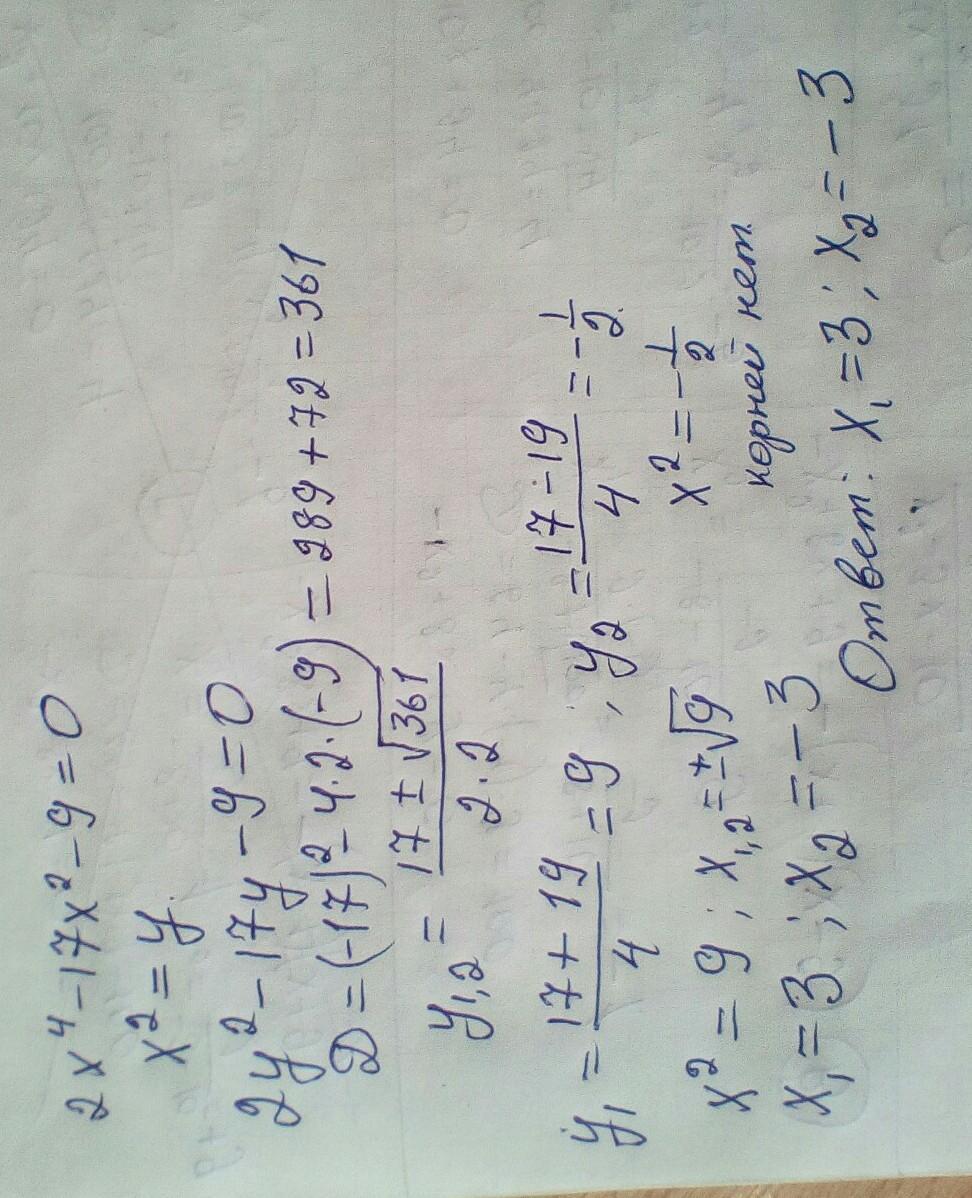 2x⁴-17x²-9=0
x²=y
2y²-17y-9=0
D=(-17)²-4·2·(-9)=289+72=361
y₁,₂ = (17±√361)/(2·2)
y₁ = (17+19)/4 = 9 ; y₂ = (17-19)/4 = -1/2
x²=9 ; x₁,₂=±√9 x²=-1/2
x₁=3 ; x₂=-3 корней нет.
Ответ: x₁=3; x₂=-3